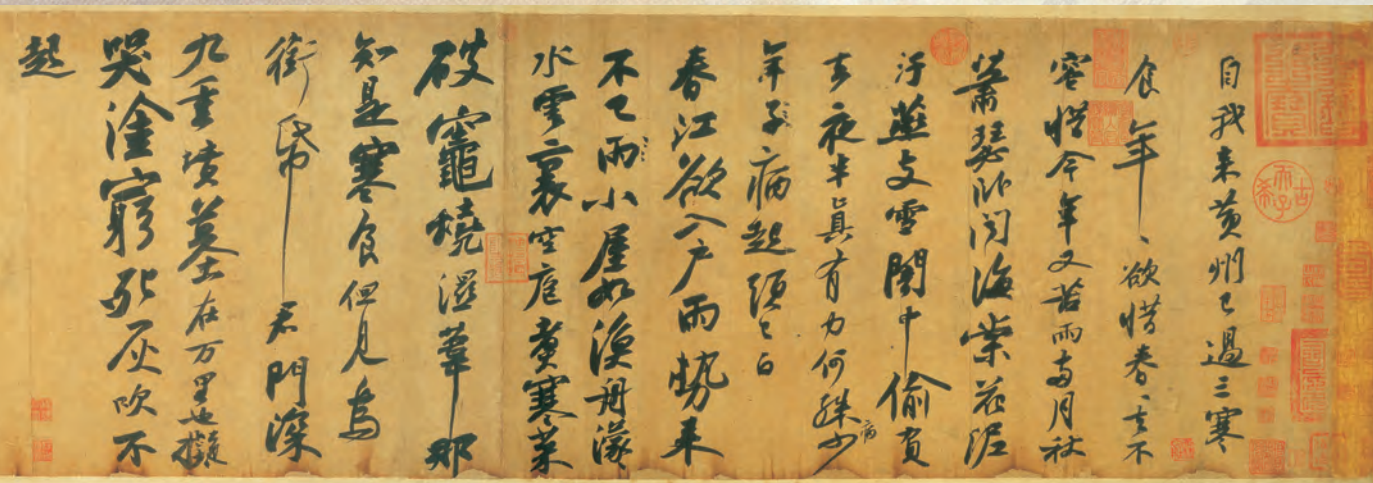 自我来黄州已過三寒
食年、欲惜春、去不
容惜今年又苦雨兩月秋
蕭瑟卧聞海棠花泥
汙燕支雪闇中偷負
去夜半真有力何殊少病
年子病起須已白
春江欲入户雨勢来
不已雨小屋如漁舟濛
水雲裏空庖煮寒菜
破竈燒濕葦那
知是寒食但見烏
銜帋君門深
九重墳墓在万里也擬
哭塗窮死灰吹不
起
古希天子